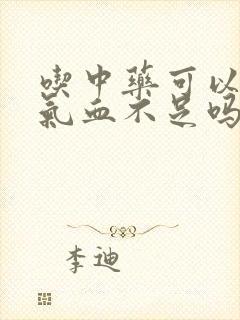 喫中藥可以
氣血不足吗
李迪